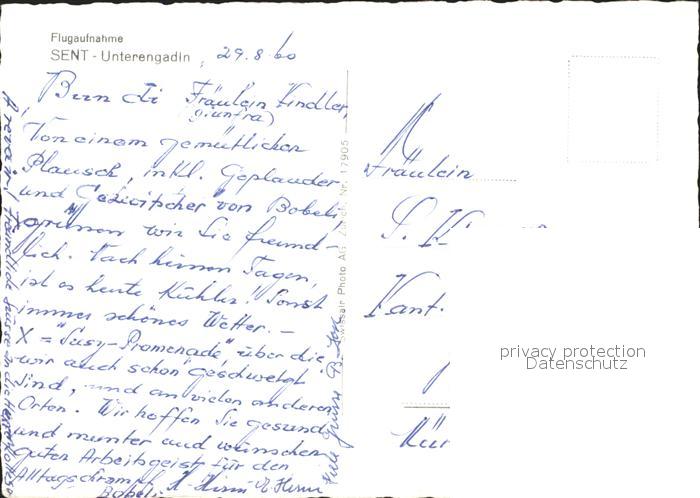 Flugaufnahme
SENT - Unterengadin, 29.8.60
Bun di Fräulein Kindler,
(Giunfra)
Von einem gemütlichen
Plausch, inkl. Geplauder
und Gezwitscher von Bobeli,
grüssen wir Sie freund-
lich. Nach heissen Tagen,
ist es heute kühler! Sonst
immer schönes Wetter. —
X = "Susy-Promenade", über die
wir auch schon geschwebt
sind, und an vielen anderen
Orten. Wir hoffen Sie gesund
und munter und wünschen
guten Arbeitsgeist für den
Alltagschrampf
Bobeli
Viele Grüsse
Swissair Photo AG. Zürich. Nr. 17905
Fräulein
S. K
Kant.
privacy protection
Datenschutz